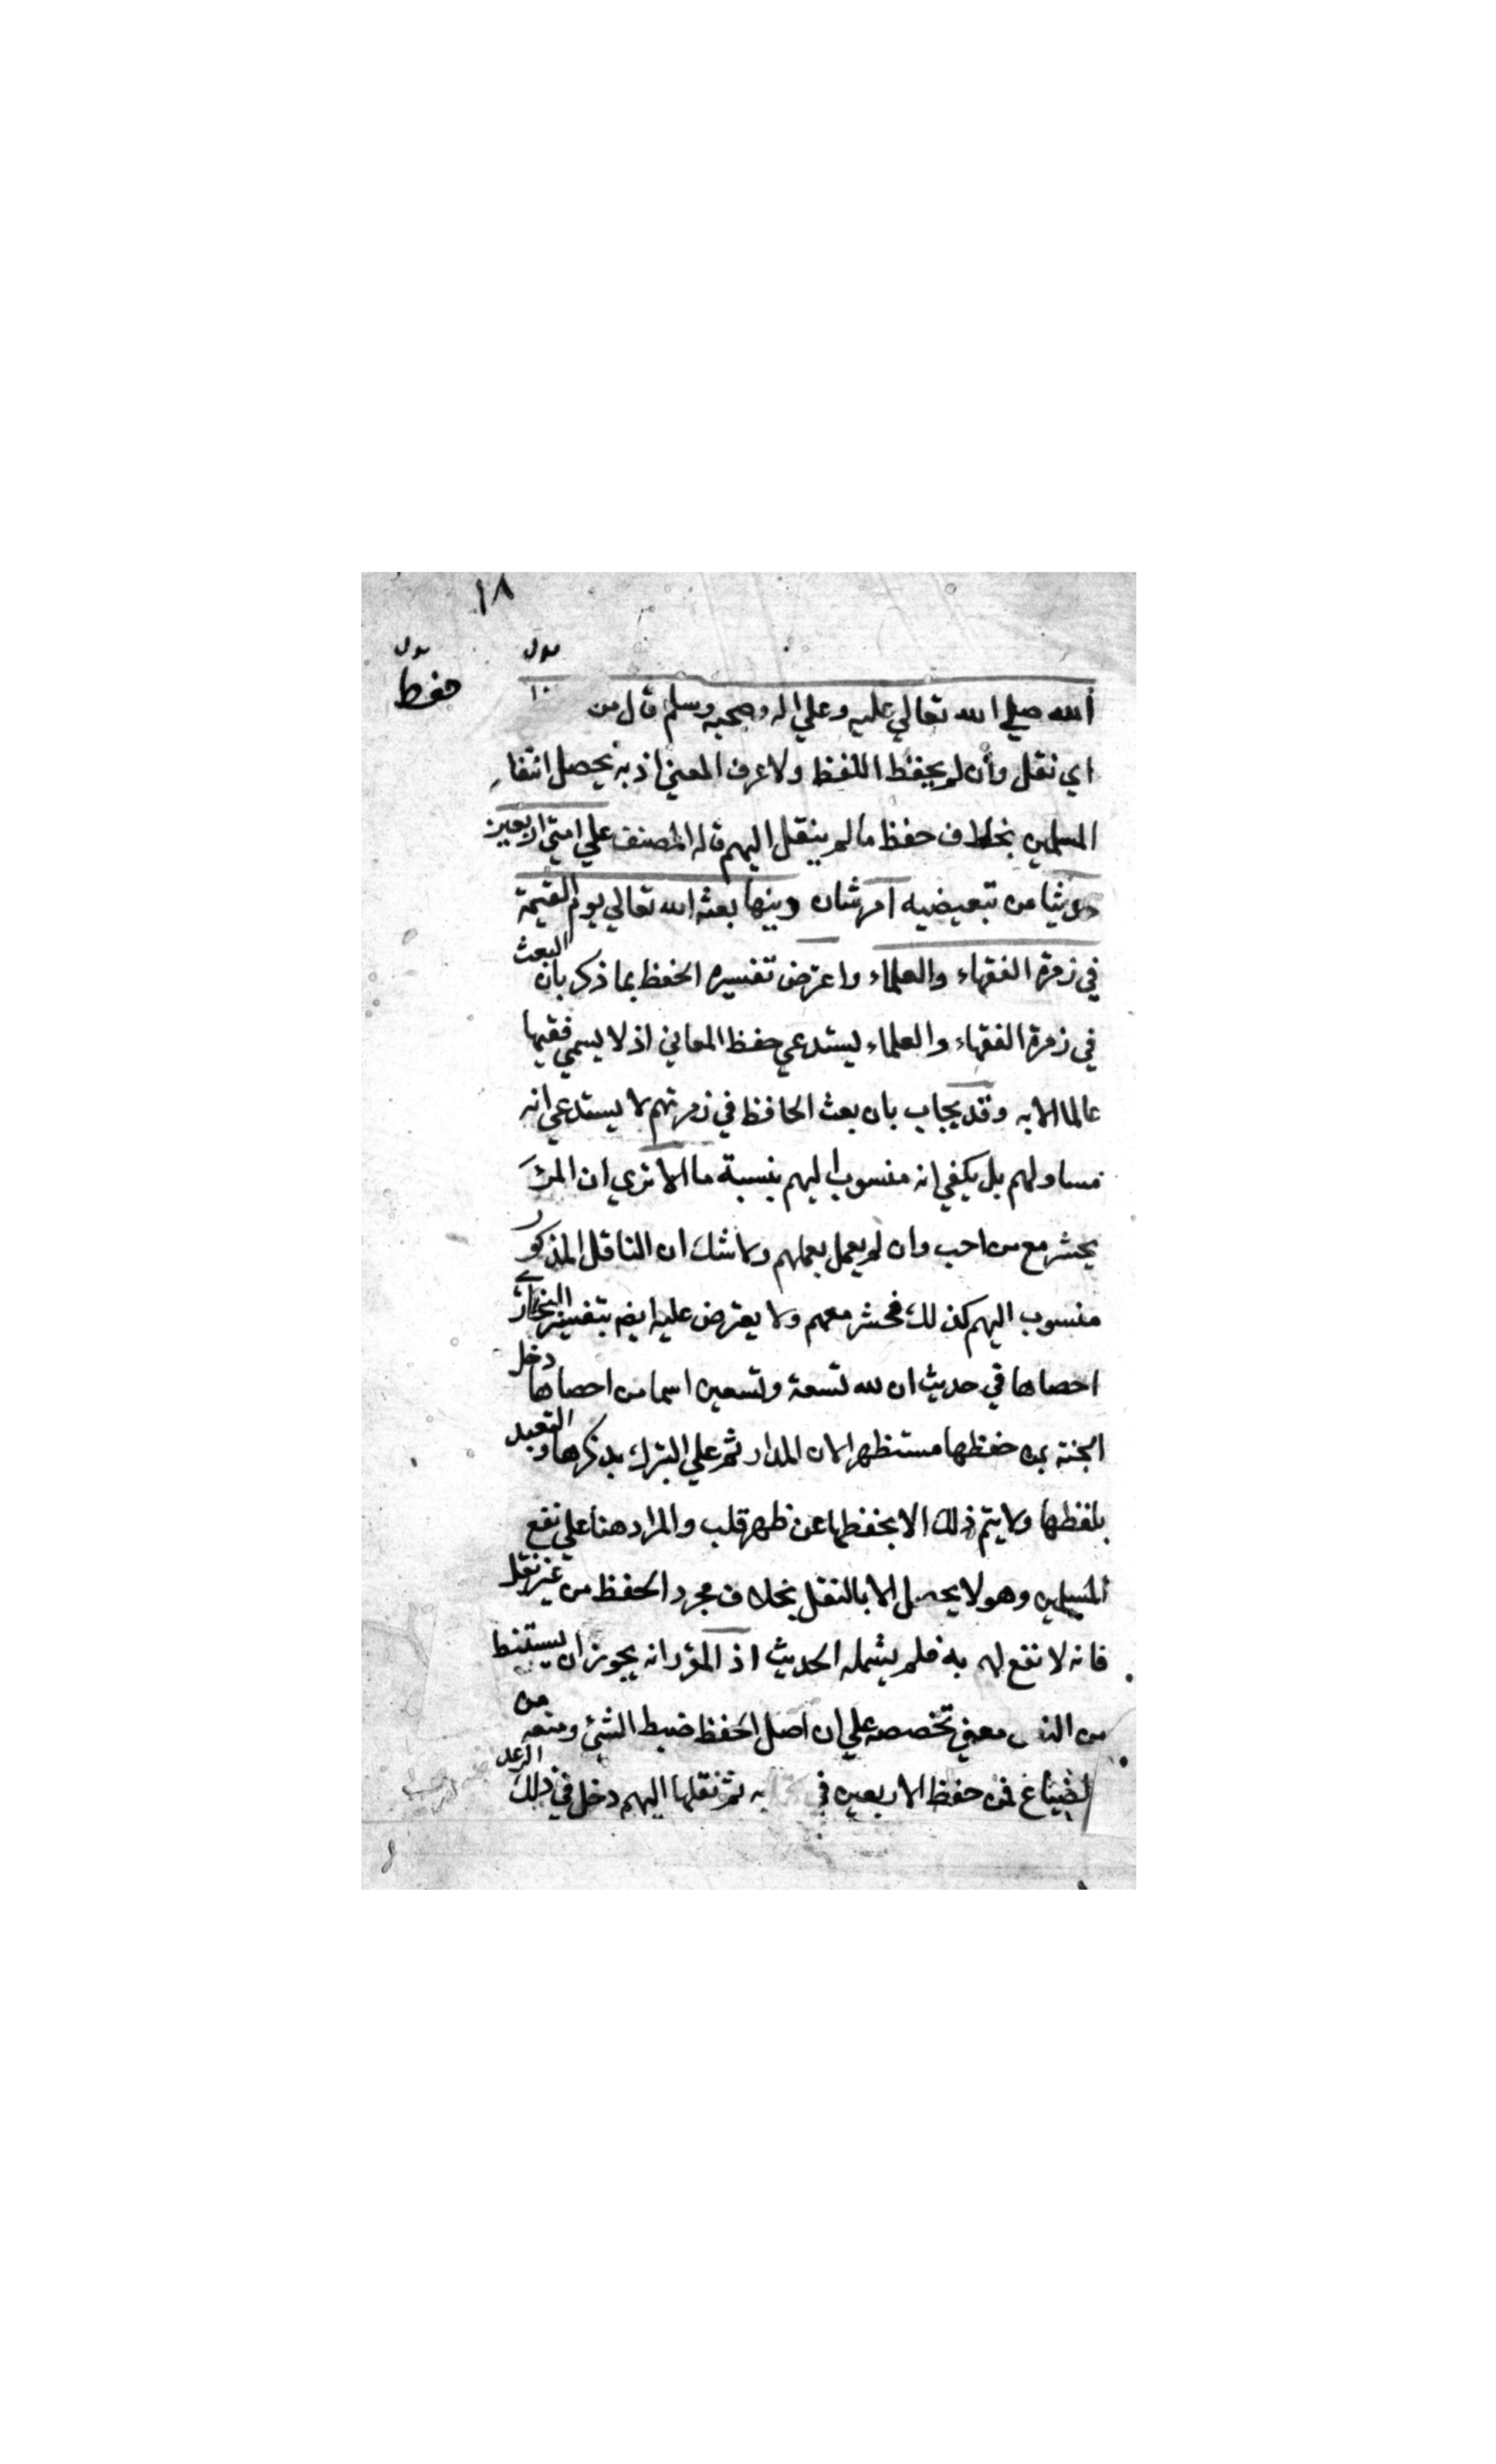 ١٨
حفظ
الله صلي الله تعالي عليه وعلي اله وصحبه وسلم قال من
اي نقل وأن لم يحفظ اللفظ ولا عرف المعني اذ به يحصل انتفاء
المسلمين بخلاف حفظ ما لم ينقل اليهم قاله المصنف علي امتي اربعين
حديثا من تبعيضيه امر شان دينها بعثه الله تعالي يوم القيمة
في زمرة الفقهاء والعلماء واعترض تفسيره الحفظ بما ذكر بان البعث
في زمرة الفقهاء والعلماء يستدعي حفظ المعاني اذ لا يسمي فقيها
عالما الا به وقد يجاب بان بعث الحافظ في زمرتهم لا يستدعي انه
مساو لهم بل يكفي انه منسوب اليهم بنسبة ما الا تري ان المرء
يحشر مع من احب وان لم يعمل بعملهم ولا شك ان الناقل المذكور
منسوب اليهم كذلك فحشر معهم ولا يعترض عليه ايضا بتفسير البخاري
احصاها في حديث ان لله تسعة وتسعين اسما من احصاها دخل
الجنة بمن حفظها مستظهرا لان المدار ثم علي التبرك بذكرها والتعبد
بلفظها ولا يتم ذلك الا بحفظها عن ظهر قلب والمراد هنا علي نفع
المسلمين وهو لا يحصل الا بالنقل بخلاف مجرد الحفظ من غير نقل
فانه لا نفع لهم به فلم يشمله الحديث اذ المقرر انه يجوز ان يستنبط
من النص معني تخصصه علي ان اصل الحفظ ضبط الشئ ومنعه من
لضياع فمن حفظ الاربعين في به ثم نقلها اليهم دخل في ذلك الوعد